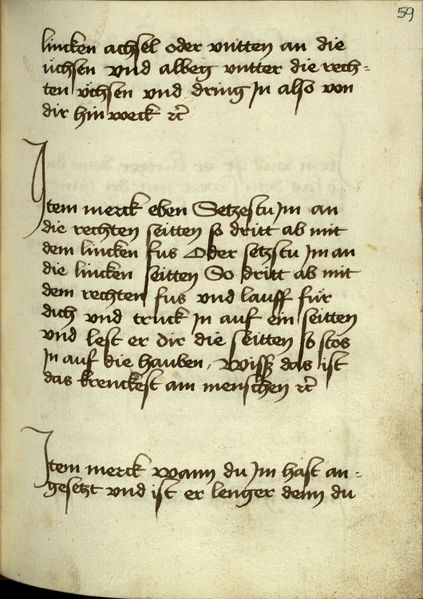 59
lincken achsel oder vntten an die
üchsen vnd albeg vntter die rech=
ten üchsen vnd dring In also von
dir hin weck etc
Item merck eben Setzestu Im an
die rechten seitten so dritt ab mit
dem lincken fus Oder setzstu Im an
die lincken seitten So dritt ab mit
dem rechten fus vnd lauff für
dich vnd truck In auf ein seitten
vnd lest er dir die seitten so stos
In auf die hauben, Wisß das ist
das krenckest am menschen etc
Item merck wann du Im hast an=
gesetzt vnd ist er lenger denn du